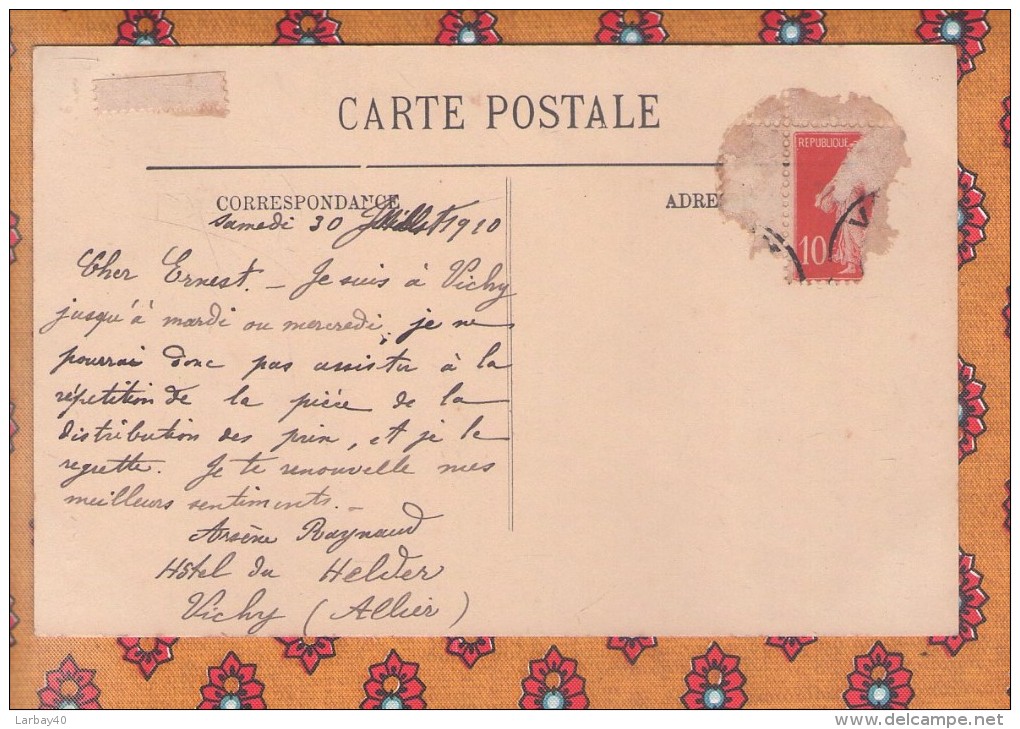 CARTE POSTALE
CORRESPONDANCE
ADRE
REPUBLIQUE
10
samedi 30 Juillet 1910
Cher Ernest. - Je suis à Vichy
jusqu'à mardi ou mercredi, je ne
pourrai donc pas assister à la
répétition de la pièce de la
distribution des prix, et je le
regrette. Je te renouvelle mes
meilleurs sentiments. -
Arsène Raynaud
Hôtel du Helder
Vichy (Allier)
Larbay40
www.delcampe.net